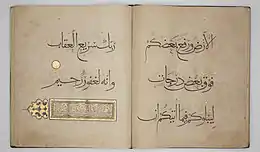 الأرض ورفع بعضكم
فوق بعض درجات
ليبلوكم في ما اتيكم ان
ربك سريع العقاب
وانه لغفور رحيم